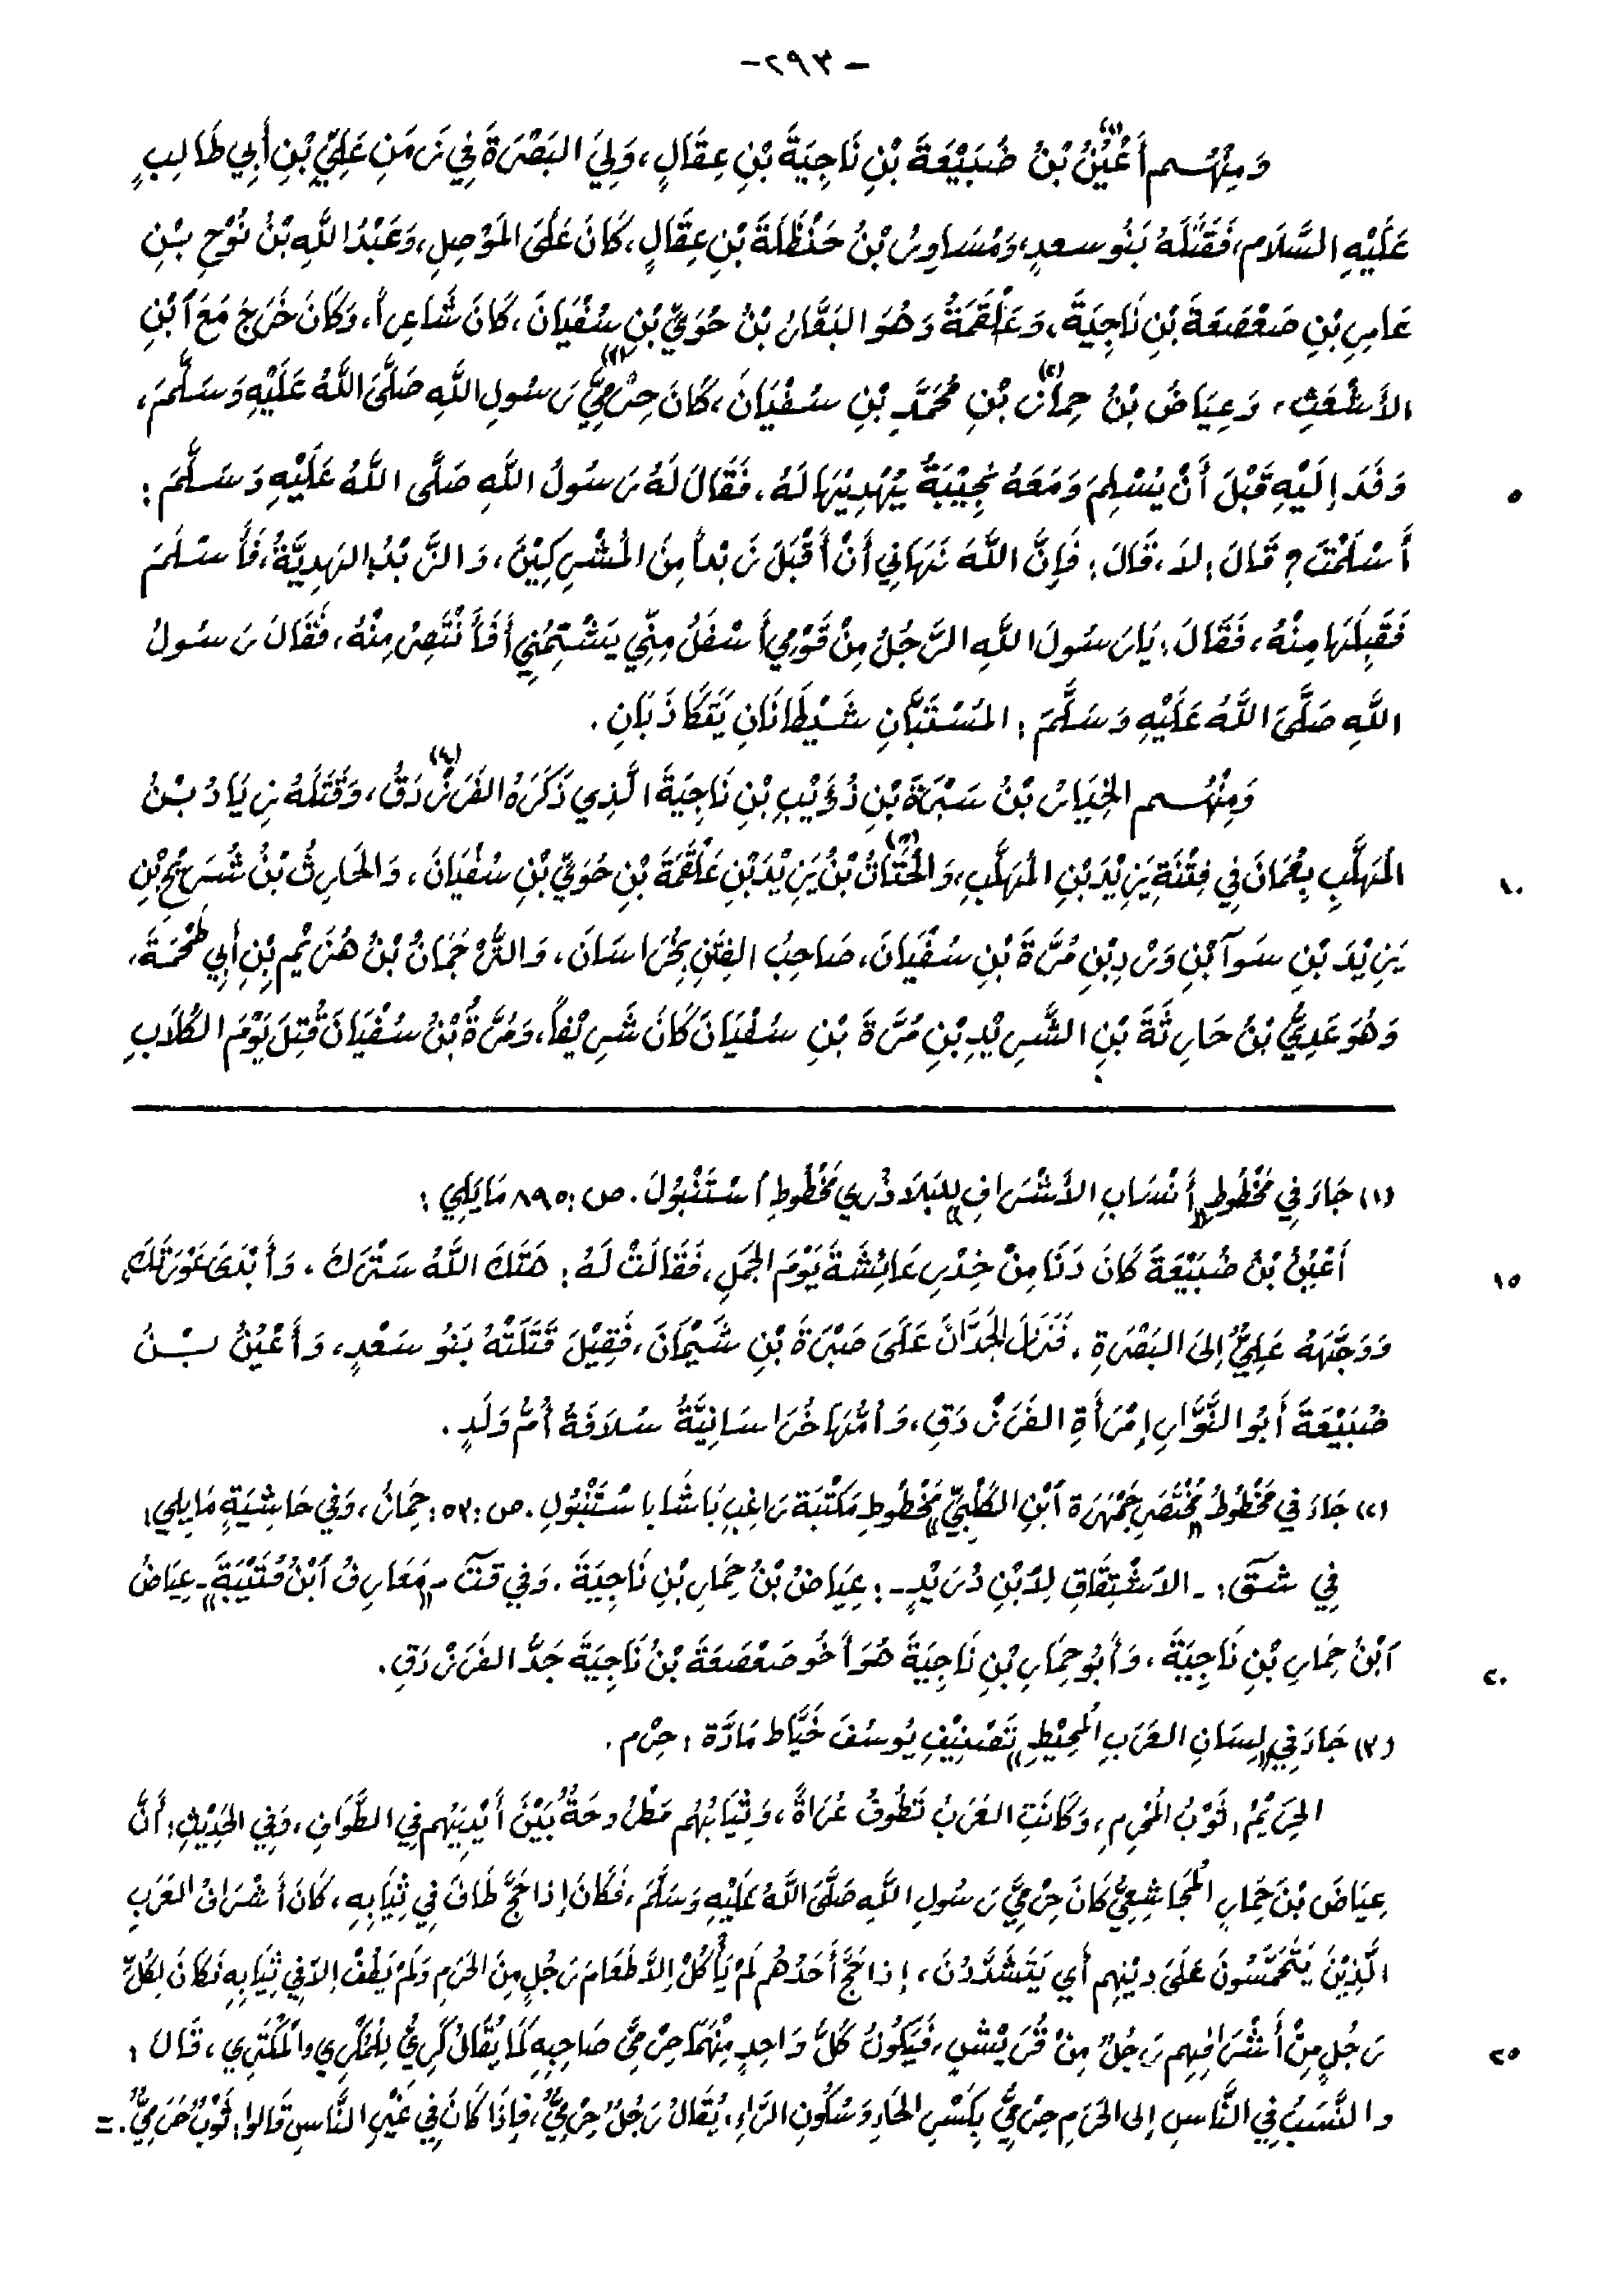 - ٢٩٣ -
وَمِنْهُم أَعْيَنُ(١) بْنُ ضُبَيْعَةَ بْنِ نَاجِيَةَ بْنِ عِقَالٍ، وَلِيَ البَصْرَةَ فِي زَمَنِ عَلِيِّ بْنِ أَبِي طَالِبٍ
عَلَيْهِ السَّلَام، فَقَتَلَهُ بَنُو سعدٍ، وَمُسَاوِرُ بْنُ حَنْظَلَةَ بْنِ عِقَالٍ، كَانَ عَلَى المَوْصِلِ، وَعَبْدُ اللَّهِ بْنُ نُوْحِ بْنِ
عَامِرِ بْنِ صَعْصَعَةَ بْنِ نَاجِيَةَ، وَعَلْقَمَةُ وَهُوَ البَعَّارُ بْنُ حُوَيِّ بْنِ سُفْيَانَ، كَانَ شَاعِراً، وَكَانَ خَرَجَ مَعَ ابْنِ
الأَشْعَثِ، وَعِيَاضُ بْنُ حِمَارِ(٢) بْنِ مُحَمَّدِ بْنِ سُفْيَانَ، كَانَ حِرْمِيَّ(٣) رَسُولِ اللَّهِ صَلَّى اللَّهُ عَلَيْهِ وَسَلَّمَ،
٥ وَفَدَ إِلَيْهِ قَبْلَ أَنْ يُسْلِمَ وَمَعَهُ نَجِيْبَةٌ يُهْدِيْهَا لَهُ، فَقَالَ لَهُ رَسُولُ اللَّهِ صَلَّى اللَّهُ عَلَيْهِ وَسَلَّمَ:
أَسْلَمْتَ؟ قَالَ: لاَ، قَالَ: فَإِنَّ اللَّهَ نَهَانِي أَنْ أَقْبَلَ زَبْداً مِنَ المُشْرِكِيْنَ، وَالزَّبْدُ الهَدِيَّةُ، فَأَسْلَمَ
فَقَبِلَهَا مِنْهُ، فَقَالَ: يَا رَسُولَ اللَّهِ الرَّجُلُ مِنْ قَوْمِي أَسْفَلُ مِنِّي يَشْتِمُنِي أَفَأَنْتَصِرُ مِنْهُ، فَقَالَ رَسُولُ
اللَّهِ صَلَّى اللَّهُ عَلَيْهِ وَسَلَّمَ: المُسْتَبَّانِ شَيْطَانَانِ يَتَكَاذَبَانِ.
وَمِنْهُم الخِيَارُ بْنُ سَبْرَةَ بْنِ ذُؤَيْبِ بْنِ نَاجِيَةَ الَّذِي ذَكَرَهُ الفَرَزْدَقُ(٤)، وَقَتَلَهُ زِيَادُ بْنُ
١٠ المُهَلَّبِ بِعُمَانَ فِي فِتْنَةِ يَزِيْدَ بْنِ المُهَلَّبِ، وَالحُتَاتُ(٥) بْنُ يَزِيْدَ بْنِ عَلْقَمَةَ بْنِ حُوَيِّ بْنِ سُفْيَانَ، وَالحَارِثُ بْنُ شُرَيْحِ بْنِ
يَزِيْدَ بْنِ سَوَآ بْنِ وَرْدِ بْنِ مُرَّةَ بْنِ سُفْيَانَ، صَاحِبُ الفِتَنِ بِخُرَاسَانَ، وَالتَّرْجُمَانُ بْنُ هُرَيْمِ بْنِ أَبِي طَحْمَةَ،
وَهُوَ عَدِيُّ بْنُ حَارِثَةَ بْنِ الشَّرِيْدِ بْنِ مُرَّةَ بْنِ سُفْيَانَ كَانَ شَرِيْفاً، وَمُرَّةُ بْنُ سُفْيَانَ قُتِلَ يَوْمَ الكُلاَبِ
(١) جَاءَ فِي مَخْطُوطِ «أَنْسَابِ الأَشْرَافِ» لِلبَلاَذُرِي مَخْطُوطِ اسْتَنْبُولَ. ص: ٨٩٥ مَا يَلِي:
١٥ أَعْيَنُ بْنُ ضُبَيْعَةَ كَانَ دَنَا مِنْ خِدْرِ عَائِشَةَ يَوْمَ الجَمَلِ، فَقَالَتْ لَهُ: هَتَكَ اللَّهُ سَتْرَكَ، وَأَبْدَى عَوْرَتَكَ،
وَوَجَّهَهُ عَلِيٌّ إِلَى البَصْرَةِ، فَنَزَلَ الحُدَّانَ عَلَى صَبْرَةَ بْنِ شَيْمَانَ، فَقِيْلَ قَتَلَتْهُ بَنُو سَعْدٍ، وَأَعْيَنُ بْنُ
ضُبَيْعَةَ أَبُو النَّوَّارِ إِمْرَأَةِ الفَرَزْدَقِ، وَأُمُّهَا خُرَاسَانِيَّةٌ سُلاَفَةُ أُمُّ وَلَدٍ.
(٢) جَاءَ فِي مَخْطُوطُ «مُخْتَصَرِ جَمْهَرَة ابْنِ الكَلْبِيِّ» مَخْطُوطِ مَكْتَبَة رَاغِب بَاشَا بِاسْتَنْبُولِ. ص: ٥٣: حِمَارُ، وَفِي حَاشِيَةٍ مَا يلي:
فِي شق: - الاشْتِقَاقِ لِابْنِ دُرَيْدٍ -: عِيَاضُ بْنُ حِمَارِ بْنِ نَاجِيَةَ. وَفِي قت - «مَعَارِفُ ابْنُ قُتَيْبَةَ» - عِيَاضُ
٢٠ ابْنُ حِمَارِ بْنِ نَاجِيَةَ، وَأَبُو حِمَارِ بْنِ نَاجِيَةَ هُوَ أَخُو صَعْصَعَةَ بْنُ نَاجِيَةَ جَدُّ الفَرَزْدَقِ.
(٣) جَاءَ فِي «لِسَانِ العَرَبِ المُحِيْطِ» تَصْنِيْفِ يُوسُفَ خَيَّاط مَادَّة: حِرْم.
الحَرِيْمُ: ثَوْبُ المُحْرِمِ، وَكَانَتِ العَرَبُ تَطُوفُ عُرَاةً، وَثِيَابُهُم مَطْرُوحَةٌ بَيْنَ أَيْدِيْهِم فِي الطَّوَافِ، وَفِي الحَدِيْثِ: أَنَّ
عِيَاضَ بْنَ حِمَارٍ المُجَاشِعِيُّ كَانَ حِرْمِيَّ رَسُولِ اللَّهِ صَلَّى اللَّهُ عَلَيْهِ وَسَلَّمَ، فَكَانَ إِذَا حَجَّ طَافَ فِي ثِيَابِهِ، كَانَ أَشْرَافُ العَرَبِ
الَّذِيْنَ يَتَحَمَّسُونَ عَلَى دِيْنِهِم أَي يَتَشَدَّدُنَ، إِذَا حَجَّ أَحَدُهُم لَمْ يَأْكُلْ إِلاَّ طَعَامَ رَجُلٍ مِنَ الحَرَمِ وَلَمْ يَطُفْ إِلاَّ فِي ثِيَابِهِ فَكَانَ لِكُلِّ
٢٥ رَجُلٍ مِنْ أَشْرَافِهِم رَجُلٌ مِنْ قُرَيْشٍ، فَيَكُونُ كُلُّ وَاحِدٍ مِنْهُمَا حِرْمِيَّ صَاحِبِهِ كَمَا يُقَالُ كَرِيُّ لِلْمُكْرِي والمُكْتَرِي، قَالَ:
والنَّسَبُ فِي النَّاسِ إِلى الحَرَمِ حِرْمِيٌّ بِكَسْرِ الحَاءِ وَسُكُونِ الرَّاءِ، يُقَالُ رَجُلٌ حِرْمِيٌّ، فَإِذَا كَانَ فِي غَيْرِ النَّاسِ قَالوا: ثَوْبٌ حَرَمِيٌّ. =